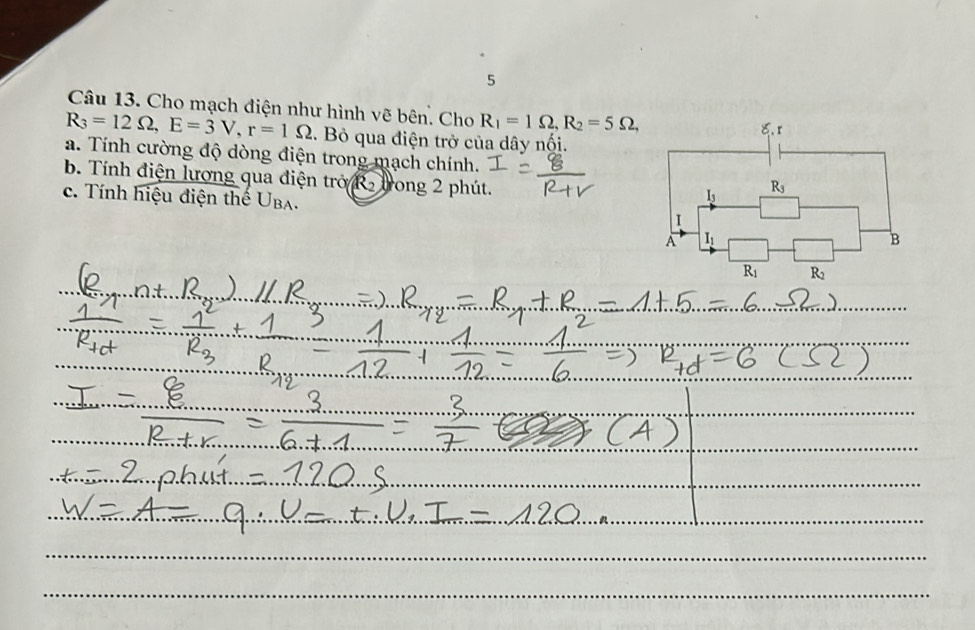 5
Câu 13. Cho mạch điện như hình vẽ bên. Cho R₁ = 1 Ω, R₂ = 5 Ω,
R₃ = 12 Ω, E = 3 V, r = 1 Ω. Bỏ qua điện trở của dây nối.
a. Tính cường độ dòng điện trong mạch chính. I = ℰ / R+r
b. Tính điện lượng qua điện trở R₂ trong 2 phút.
c. Tính hiệu điện thế U_BA.
ℰ, r
I₃ R₃
I
A I₁ B
R₁ R₂
(R₁ nt R₂) // R₃ => R₁₂ = R₁ + R₂ = 1+5 = 6 Ω)
1/R_tđ = 1/R₃ + 1/R₁₂ = 1/12 + 1/12 = 1/6 => R_tđ = 6 (Ω)
I = ℰ/R+r = 3/6+1 = 3/7 (A)
t = 2 phút = 120 s
W = A = q . U = t . U . I = 120 .